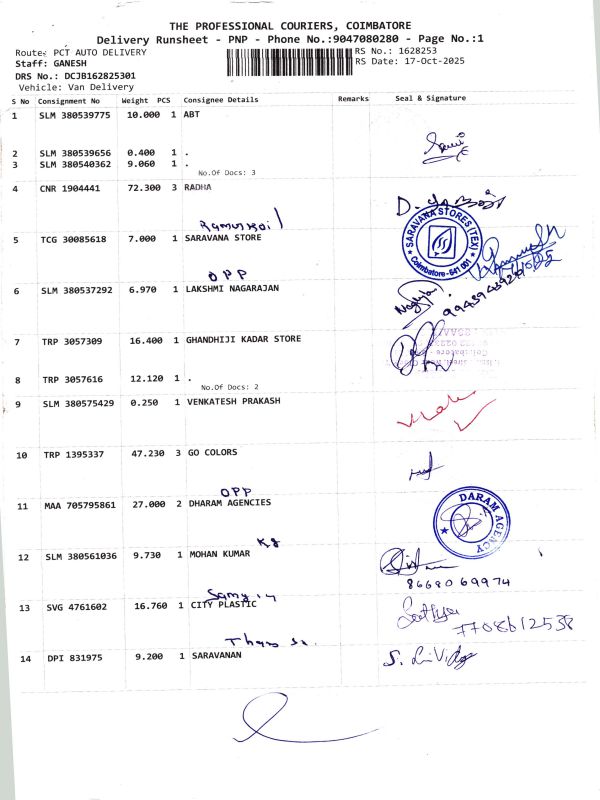 THE PROFESSIONAL COURIERS, COIMBATORE
Delivery Runsheet - PNP - Phone No.:9047080280 - Page No.:1
Route: PCT AUTO DELIVERY RS No.: 1628253
Staff: GANESH RS Date: 17-Oct-2025
DRS No.: DCJB162825301
Vehicle: Van Delivery
S No Consignment No Weight PCS Consignee Details Remarks Seal & Signature
1 SLM 380539775 10.000 1 ABT
2 SLM 380539656 0.400 1 .
3 SLM 380540362 9.060 1 .
No.Of Docs: 3
4 CNR 1904441 72.300 3 RADHA
5 TCG 30085618 7.000 1 SARAVANA STORE
SARAVANA STORES (TEX)
Coimbatore - 641 001
OPP
6 SLM 380537292 6.970 1 LAKSHMI NAGARAJAN
7 TRP 3057309 16.400 1 GHANDHIJI KADAR STORE
8 TRP 3057616 12.120 1 .
No.Of Docs: 2
9 SLM 380575429 0.250 1 VENKATESH PRAKASH
10 TRP 1395337 47.230 3 GO COLORS
OPP
11 MAA 705795861 27.000 2 DHARAM AGENCIES
DARAM AGENCY
12 SLM 380561036 9.730 1 MOHAN KUMAR
86680 69974
13 SVG 4761602 16.760 1 CITY PLASTIC
7708612538
14 DPI 831975 9.200 1 SARAVANAN